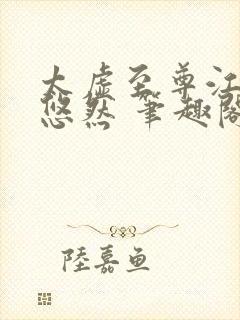 太虚至尊江
悠然 笔趣阁
陸嘉鱼